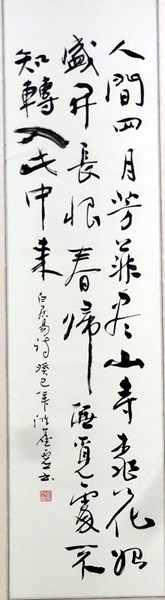 人間四月芳菲尽山寺桃花始
盛开長恨春歸無覓處不
知轉入此中来
白居易詩癸巳年书